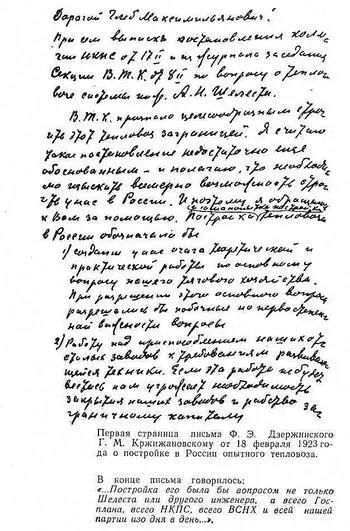 Дорогой Глеб Максимильянович!
При сем выписка постановления колле-
гии НКПС от 17 II и из журнала заседания
Секции В.Т.К. от 8 II по вопросу о тепло-
возе системы инж. А.Н. Шелеста.
В.Т.К. признало целесообразным стро-
ить этот тепловоз заграницей. Я считаю
такое постановление недостаточно еще
обоснованным – и полагаю, что необходи-
мо изыскать всемерно возможность стро-
ить у нас в России. И поэтому я обращаюсь
к Вам за помощью. Постройка тепловоза
в России обозначало бы
1) создание у нас очага теоретической и
практической работы по основному
вопросу нашего тягового хозяйства.
При разрешении этого основного вопроса
разрешались бы побочные но первостепен-
ной важности вопросы
2) Работу над приспособлением наших от-
сталых заводов к требованиям развиваю-
щейся техники. Если эта работа не будет
вестись нам угрожает необходимость
закрытия наших заводов и рабство за-
граничному капиталу
Первая страница письма Ф. Э. Дзержинского
Г. М. Кржижановскому от 18 февраля 1923 го-
да о постройке в России опытного тепловоза.
В конце письма говорилось:
«...Постройка его была бы вопросом не только
Шелеста или другого инженера, а всего Гос-
плана, всего НКПС, всего ВСНХ и всей нашей
партии изо дня в день...».